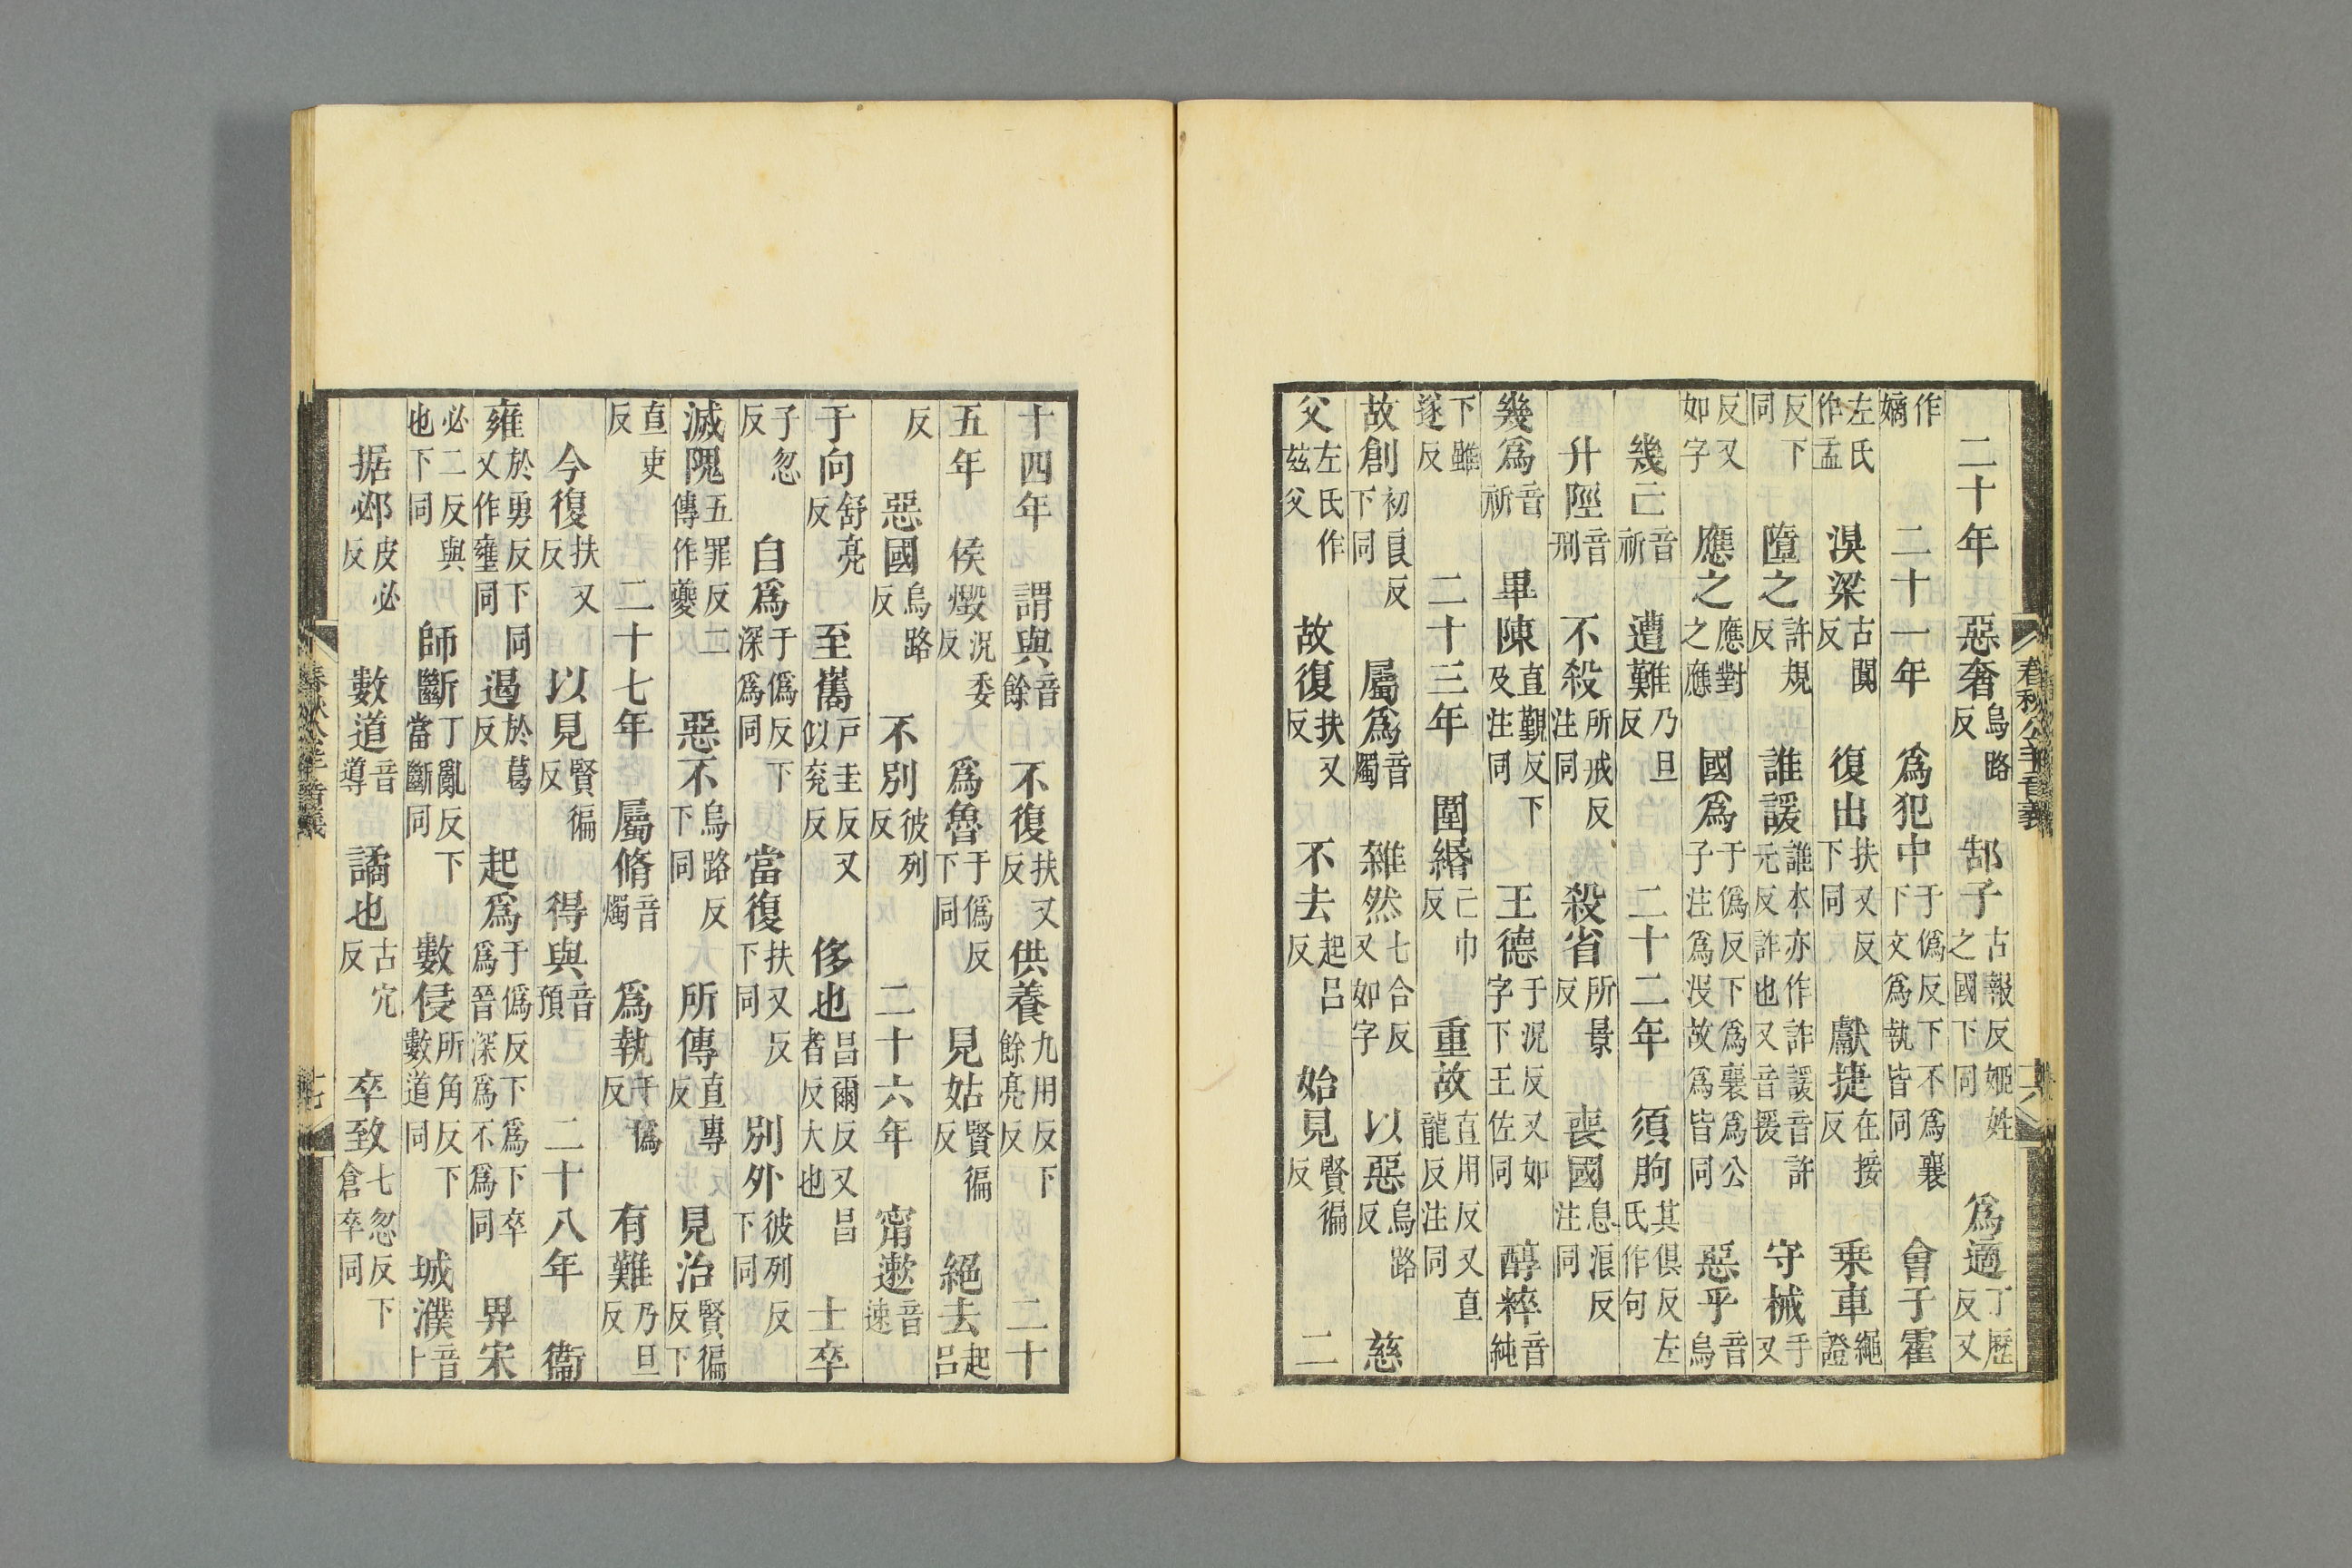 春秋公羊音義
六
二十年　惡奢烏路反　郜子古報反姬姓之國下同　爲適丁歷反又
作嫡　二十一年　爲犯中于僞反下不爲襄下文爲執皆同　會子霍
左氏作盂　湨梁古闃反　復出扶又反下同　獻捷在接反　乗車繩證
反下同　墮之許規反　誰諼誰本亦作詐諼音許元反詐也又音援　守械手又
反又如字　應之應對之應　國爲于僞反下爲襄爲公子注爲没故爲皆同　惡乎音烏
幾亡音祈　遭難乃旦反　二十二年　須朐其俱反左氏作句
升陘音刑　不殺所戒反注同　殺省所景反　喪國息浪反注同
幾爲音祈　畢陳直覲反下及注同　王德于況反又如字下王佐同　醇粹音純
下雖遂反　二十三年　圍緡亡巾反　重故直用反又直龍反注同
故創初良反下同　屬爲音燭　雜然七合反又如字　以惡烏路反　慈
父左氏作兹父　故復扶又反　不去起呂反　始見賢徧反　二
十四年　謂與音餘　不復扶又反　供養九用反下餘亮反　二十
五年　侯燬況委反　爲魯于僞反下同　見姑賢徧反　絕去起呂
反　惡國烏路反　不別彼列反　二十六年　甯遬音速
于向舒亮反　至巂户圭反又似兖反　侈也昌爾反又昌者反大也　士卒
子忽反　自爲于僞反下深爲同　當復扶又反下同　別外彼列反下同
滅隗五罪反二傳作夔　惡不烏路反下同　所傳直專反　見治賢徧反下
直吏反　二十七年　屬脩音燭　爲執于僞反　有難乃旦反
今復扶又反　以見賢徧反　得與音預　二十八年　衞
雍於勇反下同又作壅同　遏於葛反　起爲于僞反下爲下卒爲晉深爲不爲同　畀宋
必二反與也下同　師斷丁亂反下當斷同　數侵所角反下數道同　城濮音卜
据邲皮必反　數道音導　譎也古穴反　卒致七忽反下倉卒同
春秋公羊音義
七